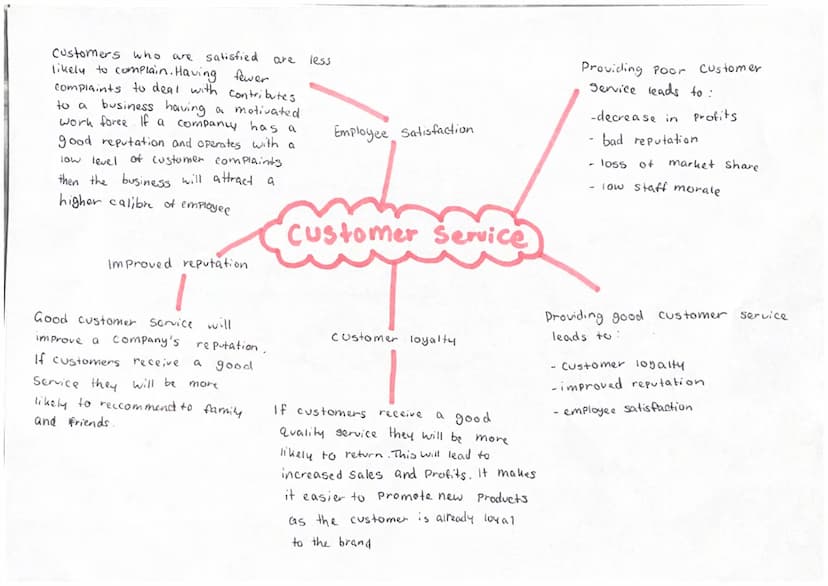 Customers who are satisfied are less
likely to complain. Having fewer
complaints to deal with contributes
to a business having a motivated
work force. If a company has a
good reputation and operates with a
low level of customer complaints
then the business will attract a
higher calibre of employee
Employee Satisfaction
Providing poor customer
service leads to:
-decrease in profits
- bad reputation
- loss of market share
- low staff morale
Customer Service
Improved reputation
Good customer service will
improve a company's reputation.
If customers receive a good
service they will be more
likely to reccommend to family
and friends.
Customer loyalty
If customers receive a good
quality service they will be more
likely to return. This will lead to
increased sales and profits. It makes
it easier to promote new products
as the customer is already loyal
to the brand
Providing good customer service
leads to:
- customer loyalty
- improved reputation
- employee satisfaction